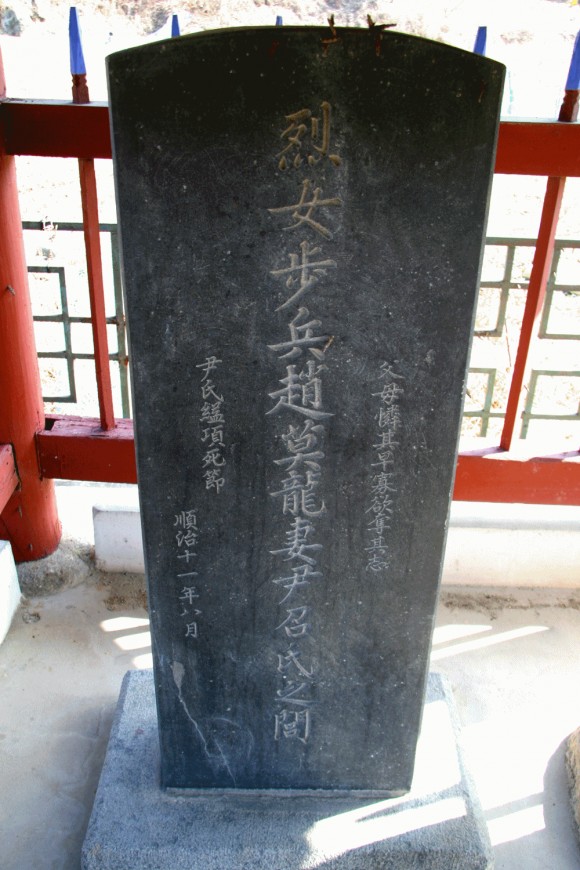 父母憐其早寡欲奪其志
烈女步兵趙莫龍妻尹召氏之閭
尹氏縊項死節
順治十一年八月